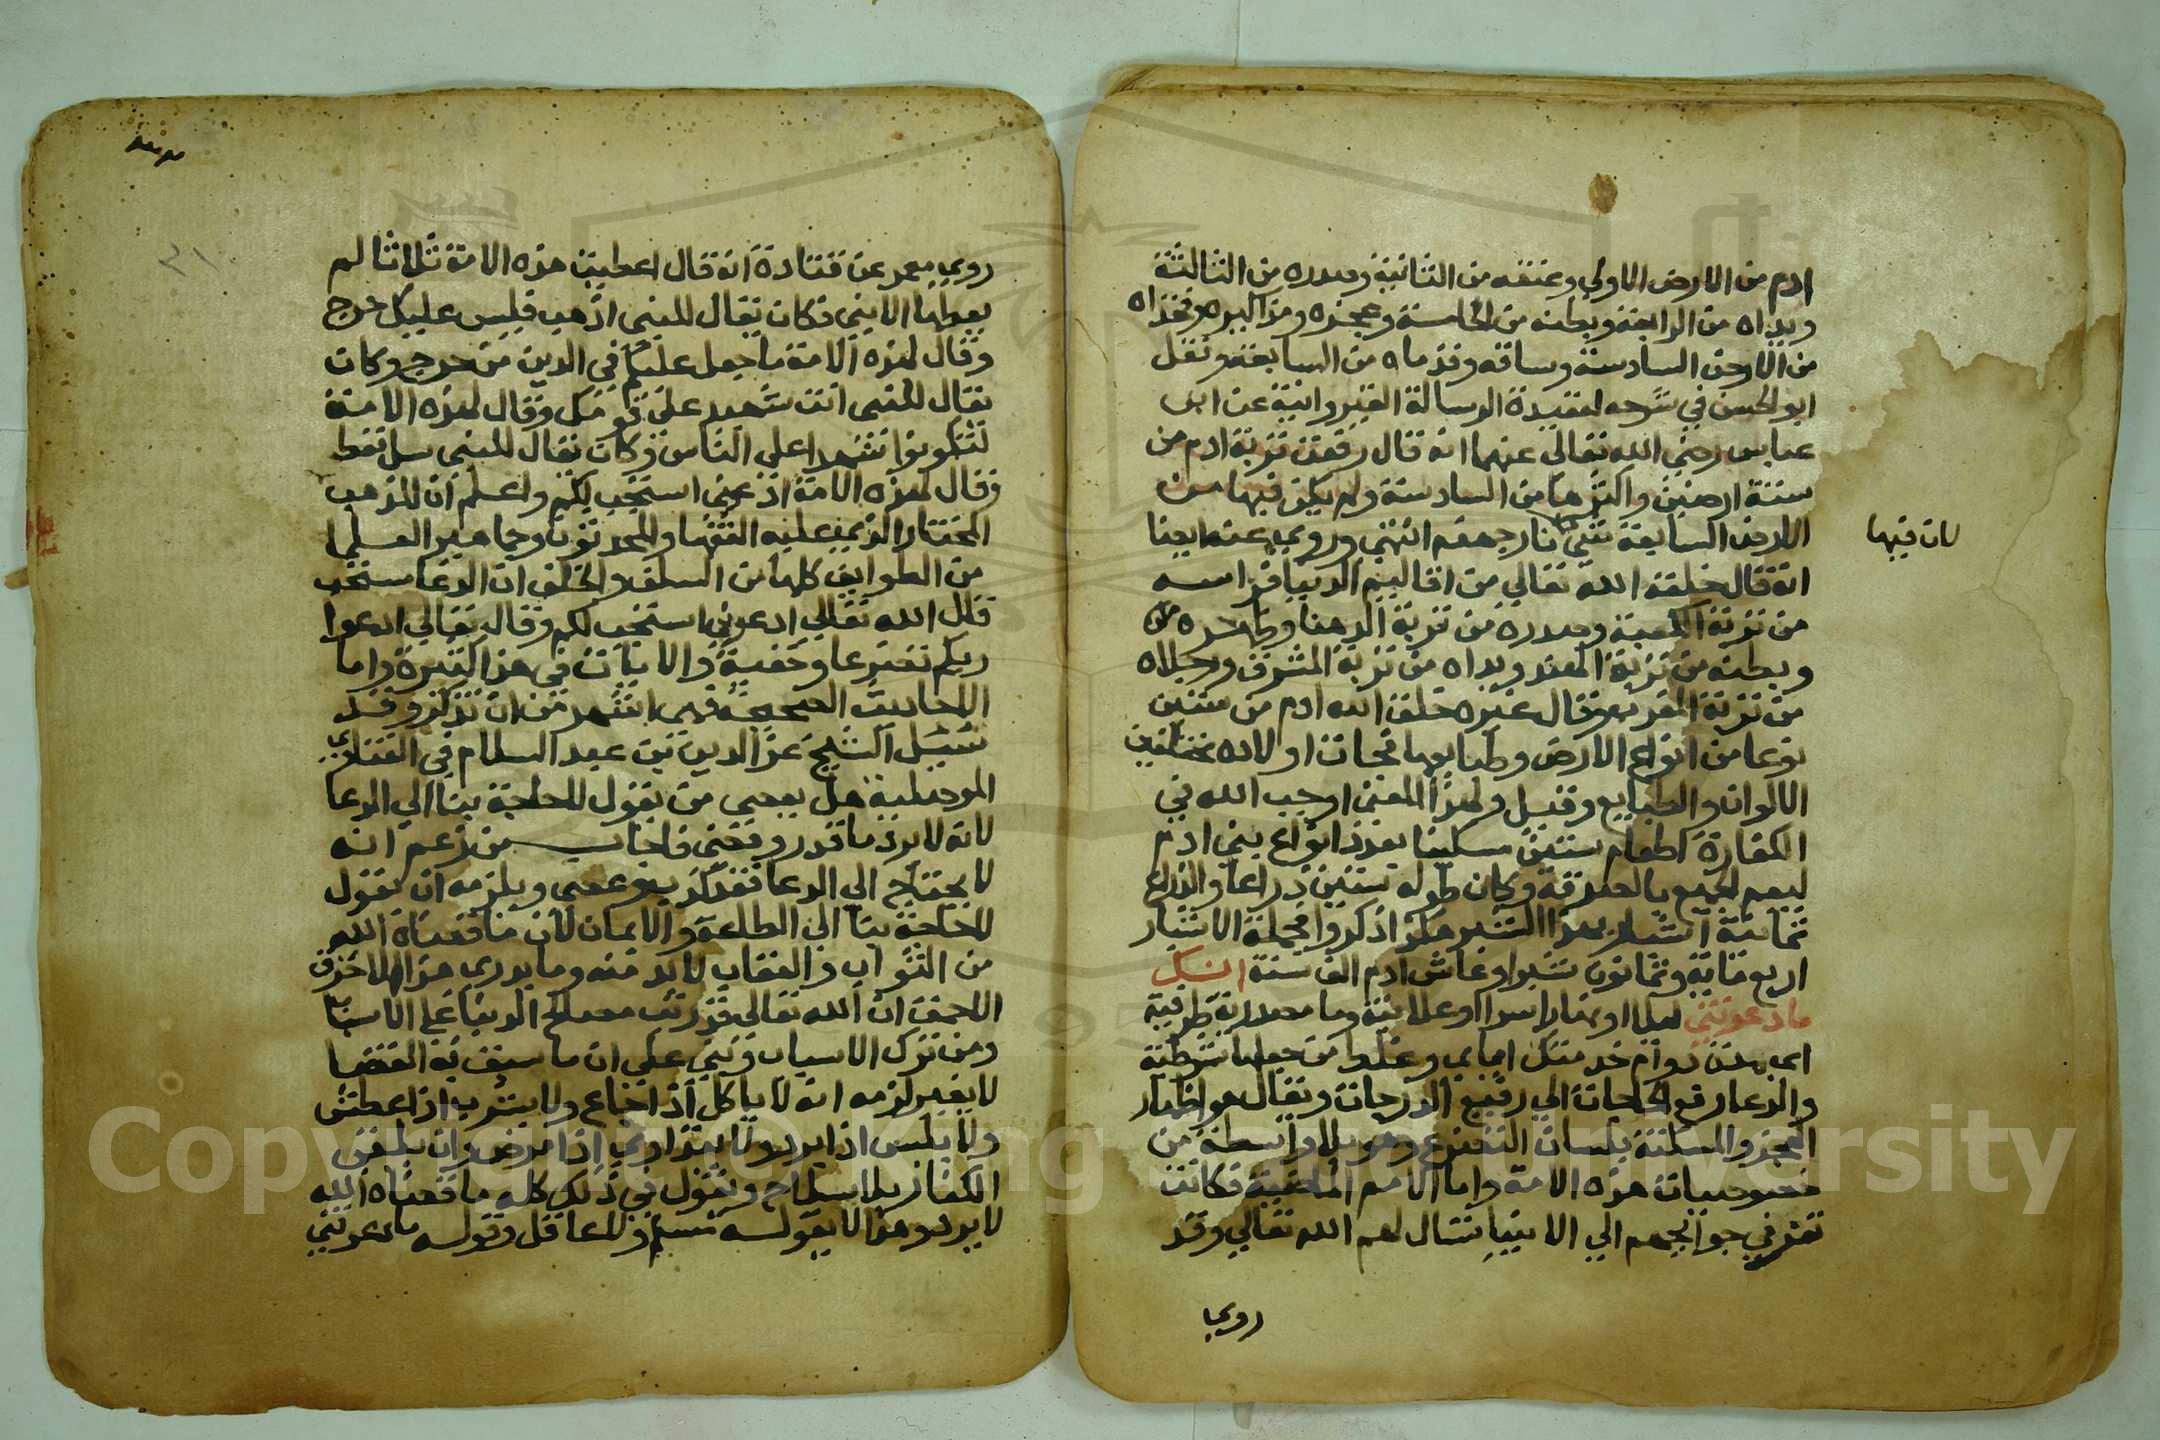 ادم من الارض الاولي وعنقه من الثانية وصدره من الثالثة
ويداه من الرابعة وبطنه من الخامسة وعجزه ومذاكيره وفخذاه
من الارض السادسة وساقه وقدماه من السابعة ونقل
ابو الحسن في شرحه لعقيدة الرسالة القيروانية عن ابن
عباس رضي الله تعالى عنهما انه قال رفعت تربة ادم من
ستة ارضين واكثرها من السادسة ولم يكن فيها من
الارض السابعة شي نار جهنم انتهى وروي عنه ايضا
لان فيها
انه قال خلقه الله تعالي من اقاليم الدنيا فراسه
من تربة الكعبة وصدره من تربة الدهنا وظهره من
وبطنه من تربة الهند ويداه من تربة المشرق ورجلاه
من تربة المغرب وقال غيره خلق الله ادم من ستين
نوعا من انواع الارض وطبايعها فجات اولاده مختلفين
الالوان والطبايع وقيل ولهذا المعني اوجب الله في
الكفارة اطعام ستين مسكينا بعدد انواع بني ادم
ليعم الجميع بالصدقة وكان طوله ستين ذراعا والذراع
ثمانية اشبار بهذا الشبر هكذا ذكروا فجملة الاشبار
اربع ماية وثمانون شبرا وعاش ادم الف سنة انك
ما دعوتني ليلا او نهارا سرا او علانية وما مصدرية ظرفية
اي مدة دوام خدمتك اياي وغلط من جعلها شرطية
والدعا رفع الحاجات الي رفيع الدرجات ويقال هو اظهار
العجز والمسكنة بلسان التضرع وهو بلا واسطة من
خصوصيات هذه الامة واما الامم الماضية فكانت
تفزع في حوايجهم الي الانبيا تسال لهم الله تعالي وقد
روي
روي معمر عن قتادة انه قال اعطيت هذه الامة ثلاثا لم
يعطها الا نبي فكان يقال للنبي اذهب فليس عليك حرج
وقال لهذه الامة ما جعل عليكم في الدين من حرج وكان
يقال للنبي انت شهيد على قومك وقال لهذه الامة
لتكونوا شهدا على الناس وكان يقال للنبي سل تعط
وقال لهذه الامة ادعوني استجب لكم واعلم ان المذهب
المختار الذي عليه الفقها والمحدثون وجماهير العلما
من الطوايف كلها من السلف والخلف ان الدعا مستحب
قال الله تعالي ادعوني استجب لكم وقال تعالي ادعوا
ربكم تضرعا وخفية والايات في هذا كثيرة واما
الاحاديث الصحيحة فهي اشهر من ان تذكر وقد
سيل الشيخ عز الدين بن عبد السلام في الفتاوي
الموصلية هل يعصي من يقول لا حاجة بنا الي الدعا
لانه لا يرد ما قدر وقضي فاجاب من زعم انه
لا يحتاج الي الدعا فقد كذب وعصي ويلزمه ان يقول
لا حاجة بنا الي الطاعة والايمان لان ما قضاه الله
من الثواب والعقاب لا بد منه وما يدري هذا الاخرق
الاحمق ان الله تعالى قد رتب مصالح الدنيا على الاسباب
ومن ترك الاسباب وبني على ان ما سبق به القضا
لا يغير لزمه انه لا ياكل اذا جاع ولا يشرب اذا عطش
ولا يلبس اذا برد ولا يتداوي اذا مرض وان يلقي
الكفار بلا سلاح ويقول في ذلك كله ما قضاه الله
لا يرد وهذا لا يقوله مسلم ولا عاقل وقوله ما دعوتني